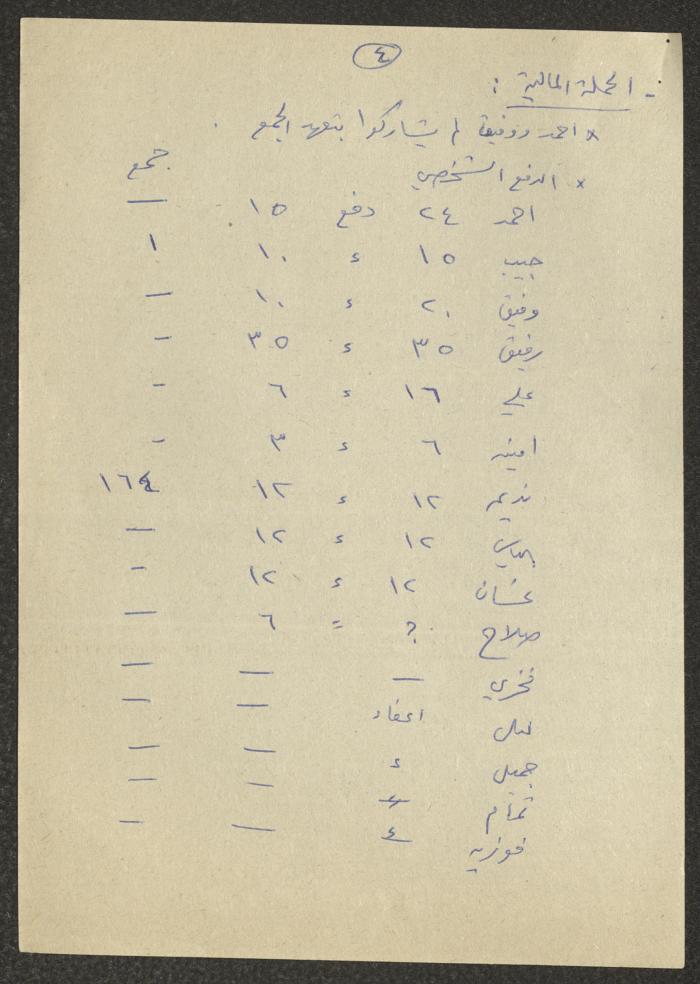 ٤
- الحملة المالية :
× احمد ووفيق لم يشاركوا بتعهد الجمع .
× الدفع الشخصي جمع
احمد ٢٤ دفع ١٥ —
حبيب ١٥ ء ١٠ ١
وفيق ٢٠ ء ١٠ —
رفيق ٣٥ ء ٣٥ -
علي ١٦ ء ٦ -
امينه ٦ ء ٣ -
نديم ١٢ ء ١٢ ١٦٤
الياس ١٢ ء ١٢ —
غسان ١٢ ء ١٢ -
صلاح ? = ٦ —
فخري — — —
ليلى اعفاء — —
جميل ء — —
تمام ء — —
فوزيه ء — —